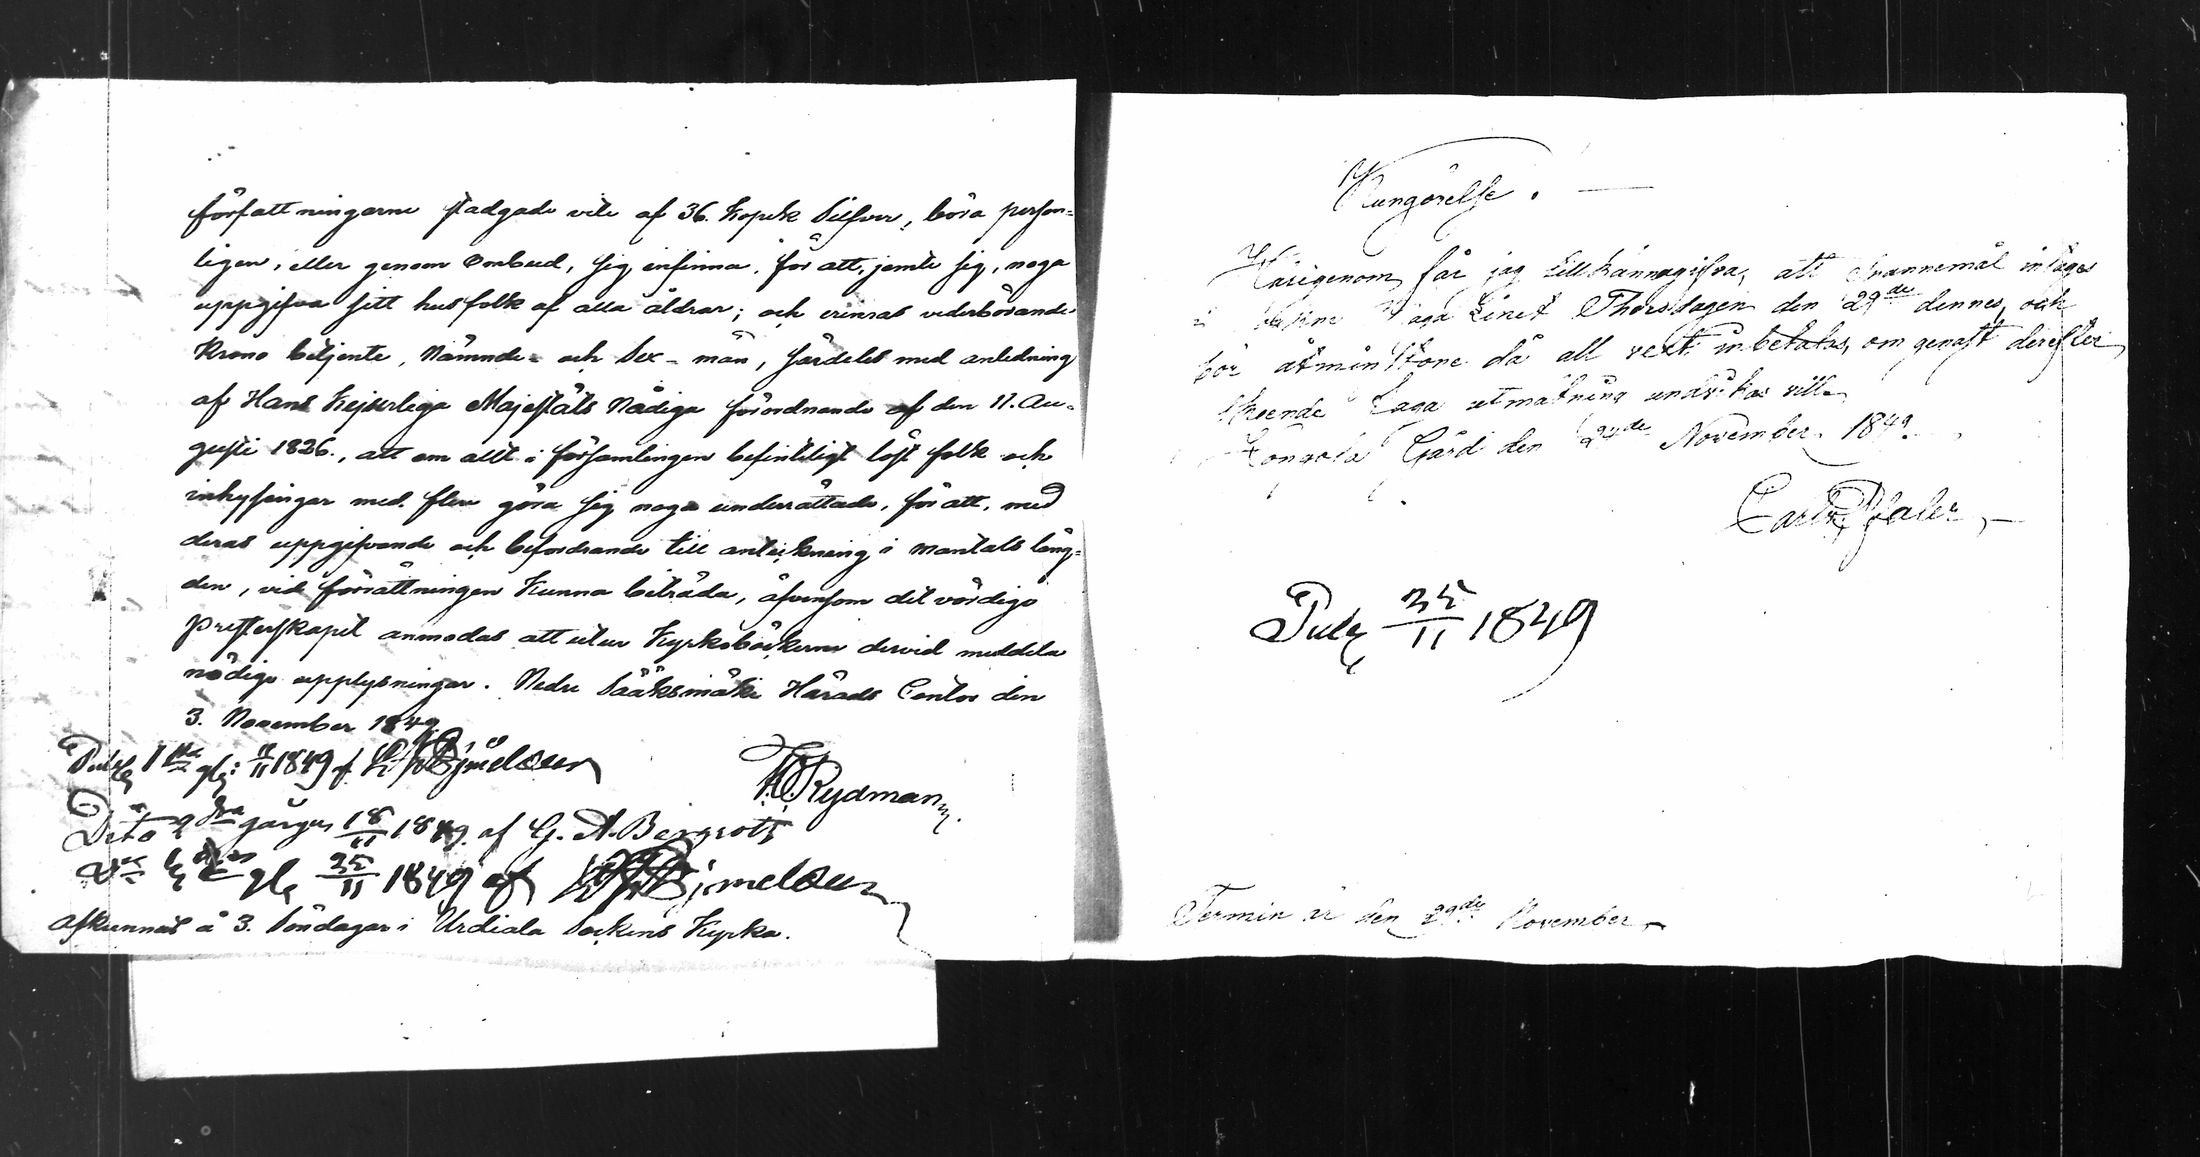 författningarne stadgade vite af 36. Kopek Silfver, böra person=
ligen, eller genom Ombud, sig infinna, för att, jemte sig, noga
uppgifva sitt husfolk af alla åldrar; och erinras vederbörande
Krono betjente, Nämnde- och Sex-män, särdeles med anledning
af Hans Kejserliga Majestäts Nådiga förordnande af den 11. Au=
gusti 1826., att om allt i församlingen befinteligt löst folk och
inhysingar med. flere göra sig noga underrättade, för att, med
deras uppgifvande och befordrande till anteckning i mantals läng=
den, vid förrättningen kunna biträda, äfvensom det vördiga
Presterskapet anmodas att utur Kyrkoböckerne dervid meddela
nödiga upplysningar. Nedre Sääksmäki Härads Contor den
3. November 1849.
F. Rydman
Publ 1 gg: 11/11 1849 af Björnelæus
Dito 2dra gången 18/11 1849 af G. A. Bergroth
gg 25/11 1849 af Björnelæus
Afkunnas å 3. Söndagar i Urdiala Sockens Kyrka.
Kungörelse.
Härigenom får jag tillkännagifva, att Spannemål intages
i Laga Tinet Thorsdagen den 29de dennes, och
bör åtminstone då all rest inbetalas, om genast derefter
skeende Laga utmätning undvikas vill.
Hongola Gård den 24de November 1849.
Carl Pfaler
Publ 25/11 1849
Termin är den 29de November